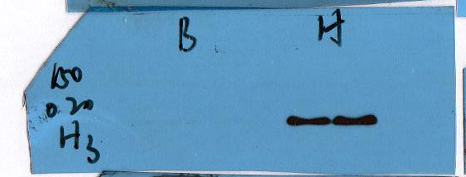 B H
150
0.20
H3